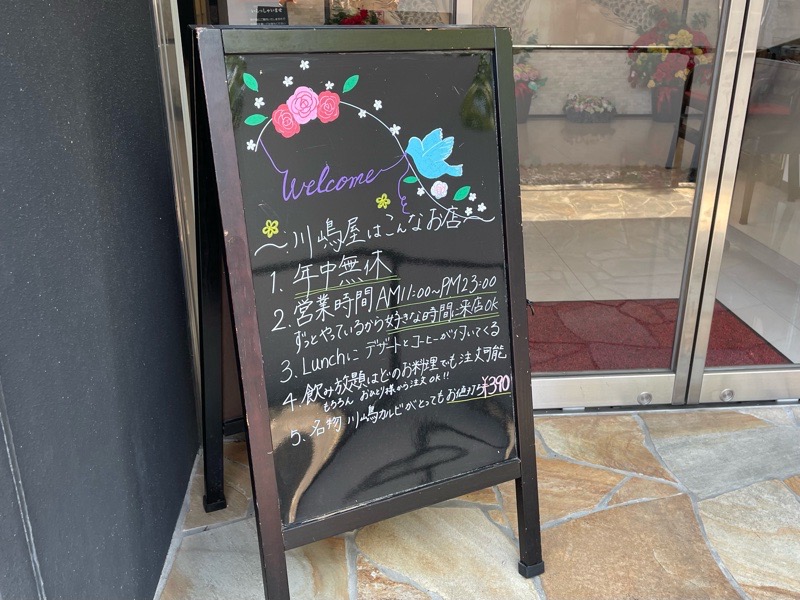 いらっしゃいませ
Welcome
〜川嶋屋はこんなお店〜
1. 年中無休
2. 営業時間 AM11:00〜PM23:00
ずっとやっているから好きな時間に来店OK
3. Lunchに デザートとコーヒーが付いてくる
4. 飲み放題はどのお料理でも注文可能
もちろん おひとり様から注文OK!!
5. 名物 川嶋カルビがとってもお値打ち¥390